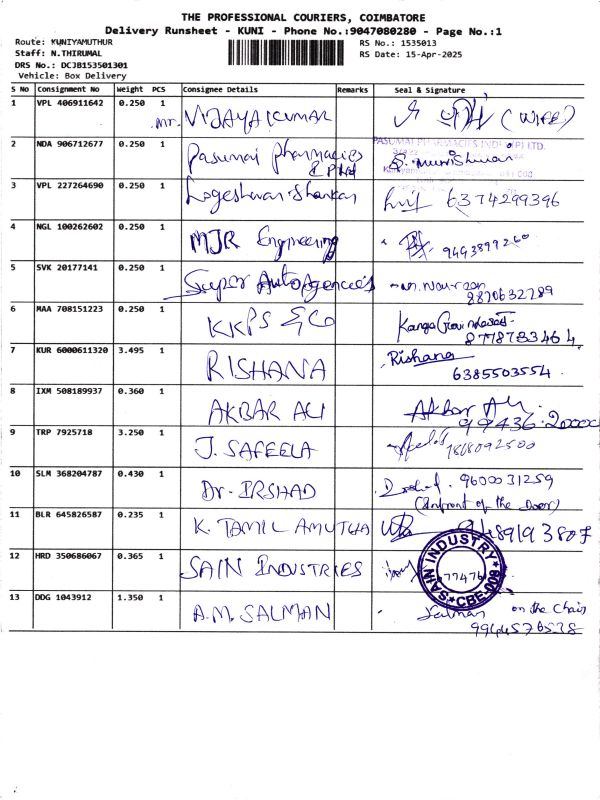 THE PROFESSIONAL COURIERS, COIMBATORE
Delivery Runsheet - KUNI - Phone No.:9047080280 - Page No.:1
Route: KUNIYAMUTHUR
Staff: N.THIRUMAL
DRS No.: DCJB153501301
Vehicle: Box Delivery
RS No.: 1535013
RS Date: 15-Apr-2025
S No Consignment No Weight PCS Consignee Details Remarks Seal & Signature
1 VPL 406911642 0.250 1 Mr. VIJAYAKUMAR (WIFE)
2 NDA 906712677 0.250 1 Pasumai Pharmacies
PASUMAI PHARMACIES
3 VPL 227264690 0.250 1 Logeshwar Shankar 6374299396
4 NGL 100262602 0.250 1 MJR Engineering
5 SVK 20177141 0.250 1 Super Auto Agencies
8870632789
6 MAA 708151223 0.250 1 KKPS & Co
7 KUR 6000611320 3.495 1 RISHANA Rishana
6385503554
8 IXM 508189937 0.360 1 AKBAR ALI Akbar Ali
9 TRP 7925718 3.250 1 J. SAFEELA
10 SLM 368204787 0.430 1 Dr. IRSHAD 9600031259
11 BLR 645826587 0.235 1 K. TAMIL AMUTHA
12 HRD 350686067 0.365 1 SAIN INDUSTRIES
SAIN INDUSTRY
CBE-008
13 DDG 1043912 1.350 1 A.M. SALMAN Salman on the Chair